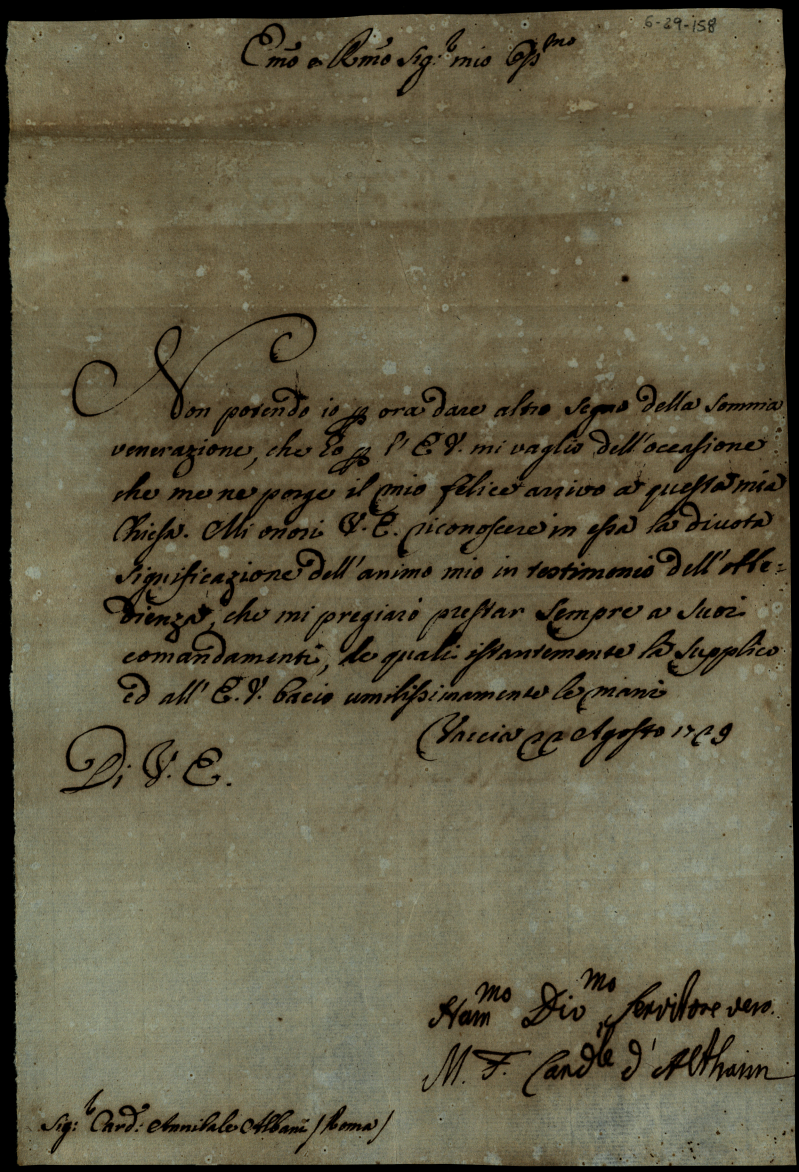 6-29-158
Em̃o e Rm̃o Sig.r mio Oss.mo
Non potendo io p ora dare altro segno della somma
venerazione, che ho p l'E.V. mi vaglio dell'occasione
che me ne porge il mio felice arrivo a questa mia
Chiesa. Mi onori V.E. riconoscere in essa la divota
significazione dell'animo mio in testimonio dell'obe=
dienza, che mi pregiarò prestar sempre a suoi
comandamenti, de quali istantemente la supplico
ed all'E.V. bacio umilissimamente le mani
Vaccia 22 Agosto 1729
Di V. E.
Divmo Servitore vero
M. F. Cardle d'Althann
Sig.r Card. Annibale Albani (Roma)